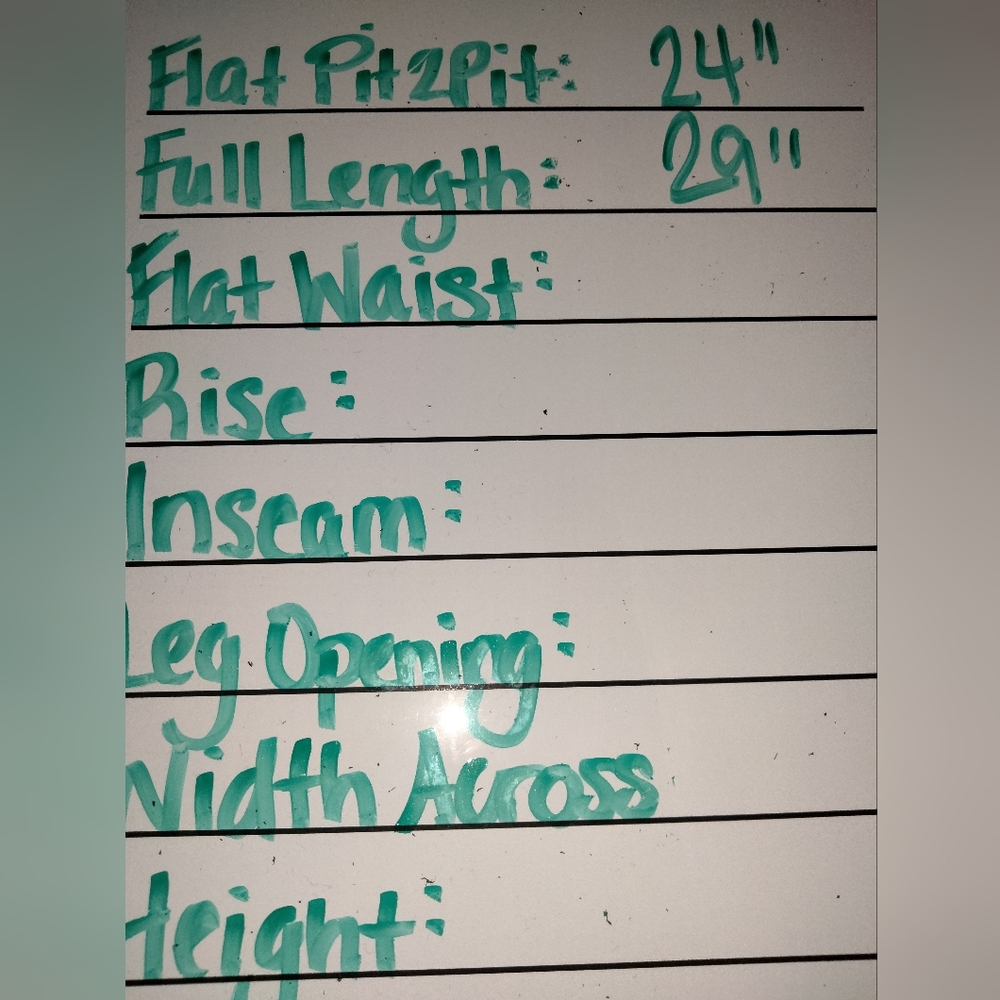 Flat Pit2Pit: 24"
Full Length: 29"
Flat Waist:
Rise:
Inseam:
Leg Opening:
Width Across
Height: